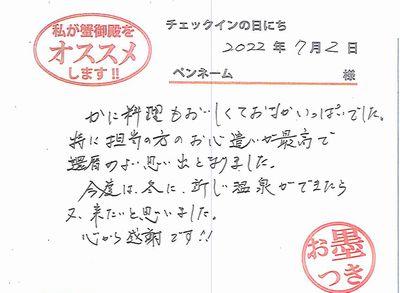 私が蟹御殿を
オススメ
します!!
チェックインの日にち
2022年 7月 2日
ペンネーム 様
かに料理もおいしくておなかいっぱいでした。
特に担当の方のお心遣いが最高で
還暦のよい思い出となりました。
今度は、冬に、新しい温泉ができたら
又、来たいと思いました。
心から感謝です!!
お墨
つき